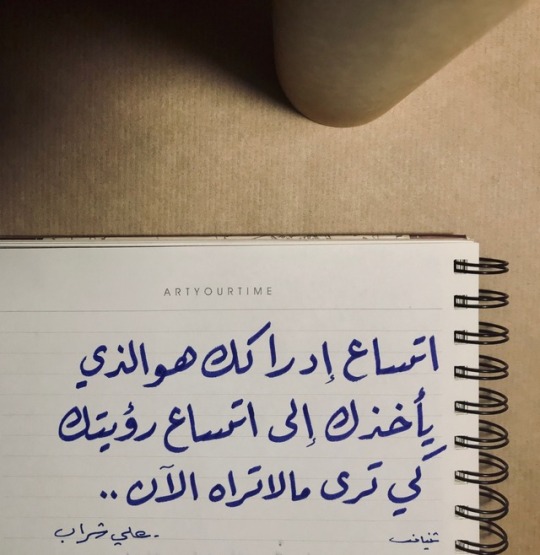 ARTYOURTIME
اتساع إدراكك هو الذي
يأخذك إلى اتساع رؤيتك
كي ترى مالاتراه الآن ..
علي شراب